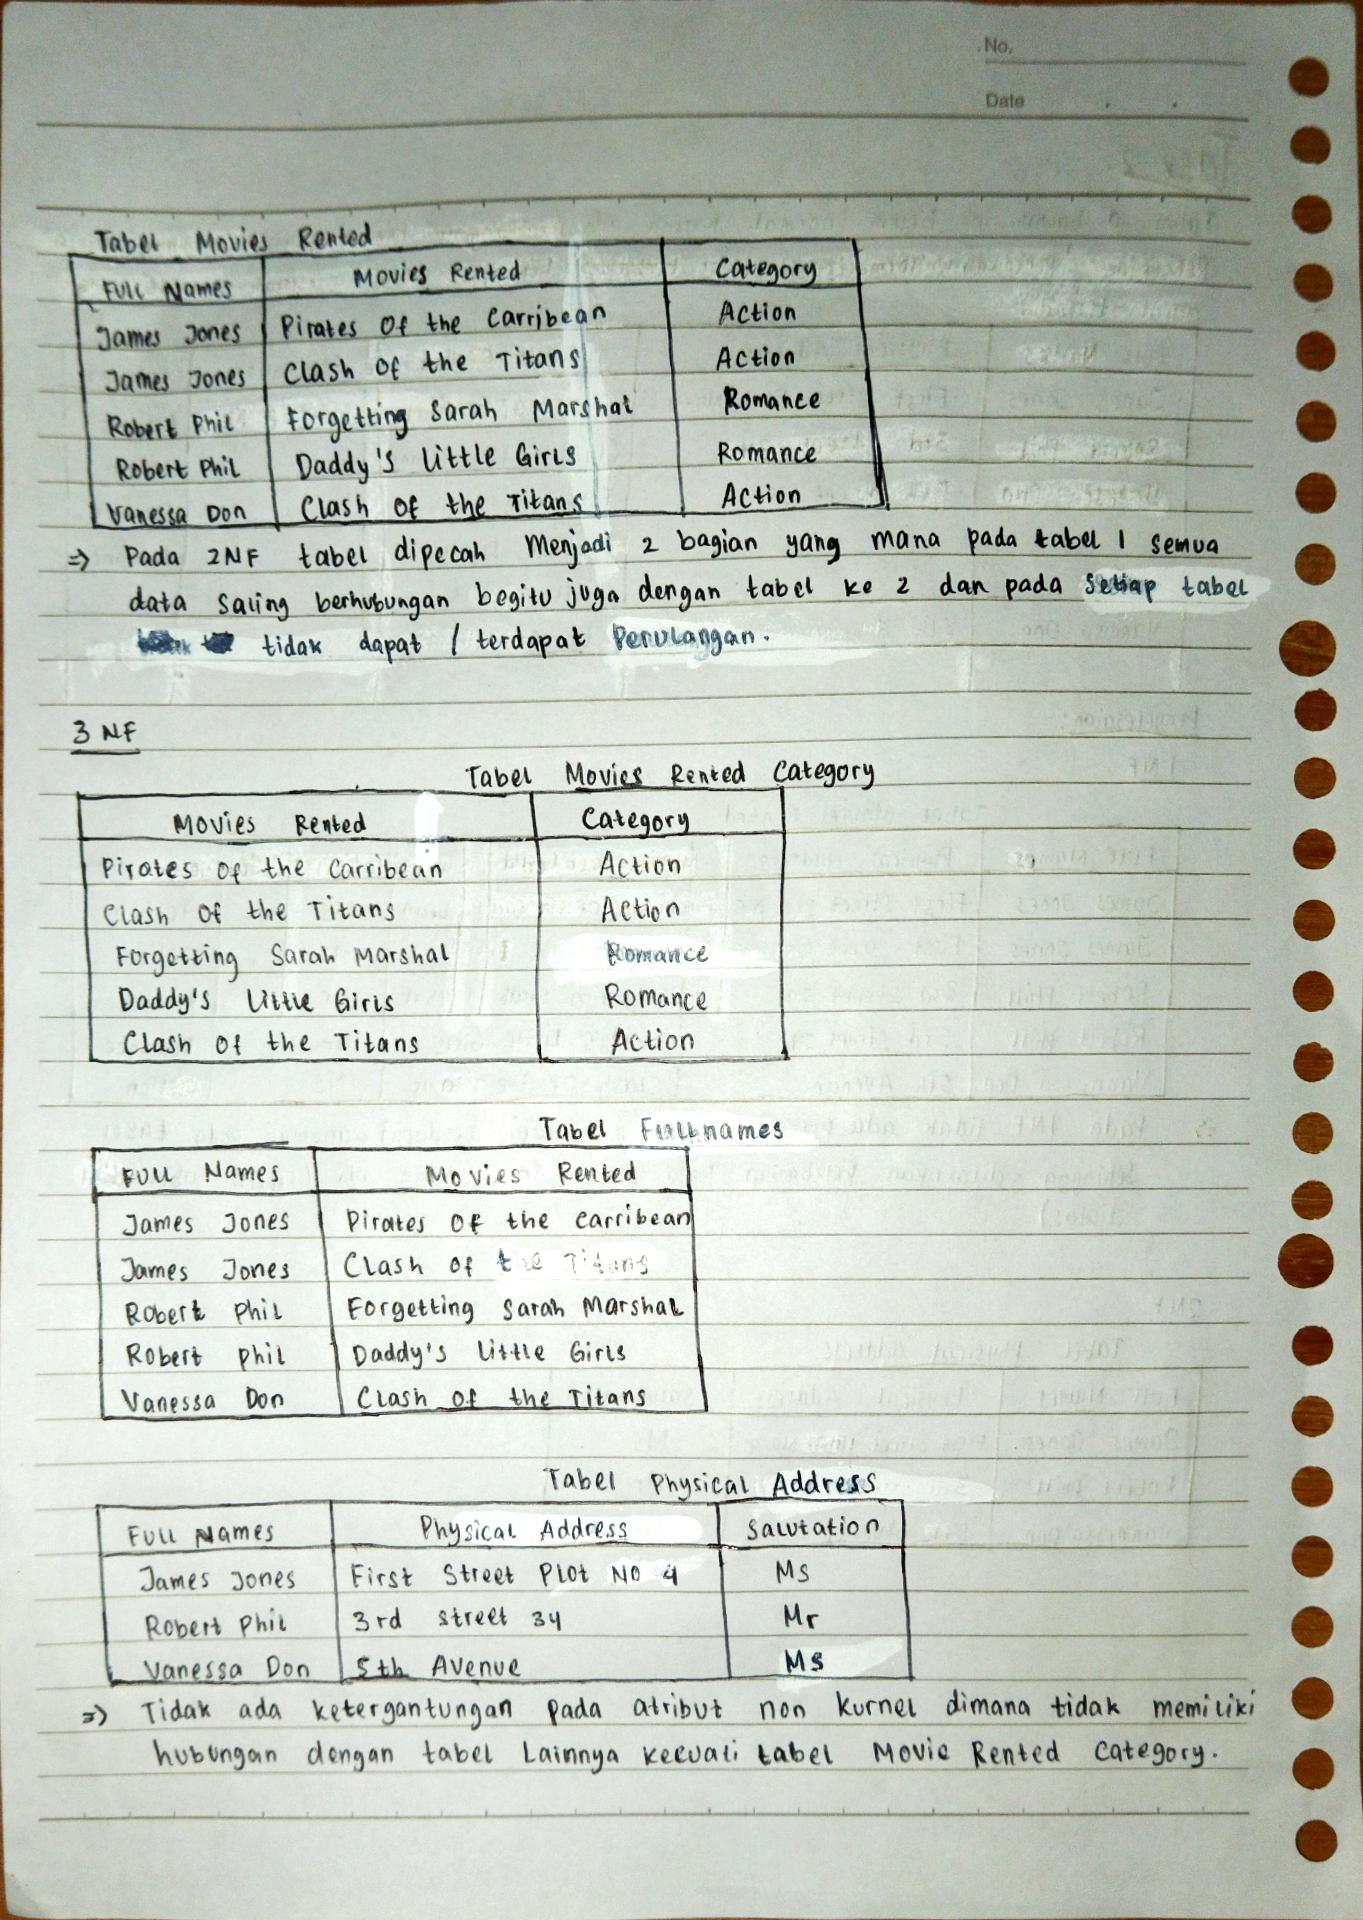 No.
Date
Tabel Movies Rented
Full Names Movies Rented Category
James Jones Pirates Of the Carribean Action
James Jones Clash of the Titans Action
Robert Phil Forgetting Sarah Marshal Romance
Robert Phil Daddy's Little Girls Romance
Vanessa Don Clash of the Titans Action
=> Pada 2NF tabel dipecah Menjadi 2 bagian yang mana pada tabel 1 semua
data saling berhubungan begitu juga dengan tabel ke 2 dan pada setiap tabel
tidak dapat / terdapat Perulangan.
3 NF
Tabel Movies Rented Category
Movies Rented Category
Pirates Of the Carribean Action
Clash Of the Titans Action
Forgetting Sarah Marshal Romance
Daddy's Little Girls Romance
Clash Of the Titans Action
Tabel Fullnames
Full Names Movies Rented
James Jones Pirates Of the Carribean
James Jones Clash of the Titans
Robert Phil Forgetting Sarah Marshal
Robert Phil Daddy's Little Girls
Vanessa Don Clash of the Titans
Tabel Physical Address
Full Names Physical Address Salutation
James Jones First Street Plot No 4 Ms
Robert Phil 3rd street 34 Mr
Vanessa Don 5th Avenue Ms
=> Tidak ada ketergantungan pada atribut non kurnel dimana tidak memiliki
hubungan dengan tabel Lainnya kecuali tabel Movie Rented Category.